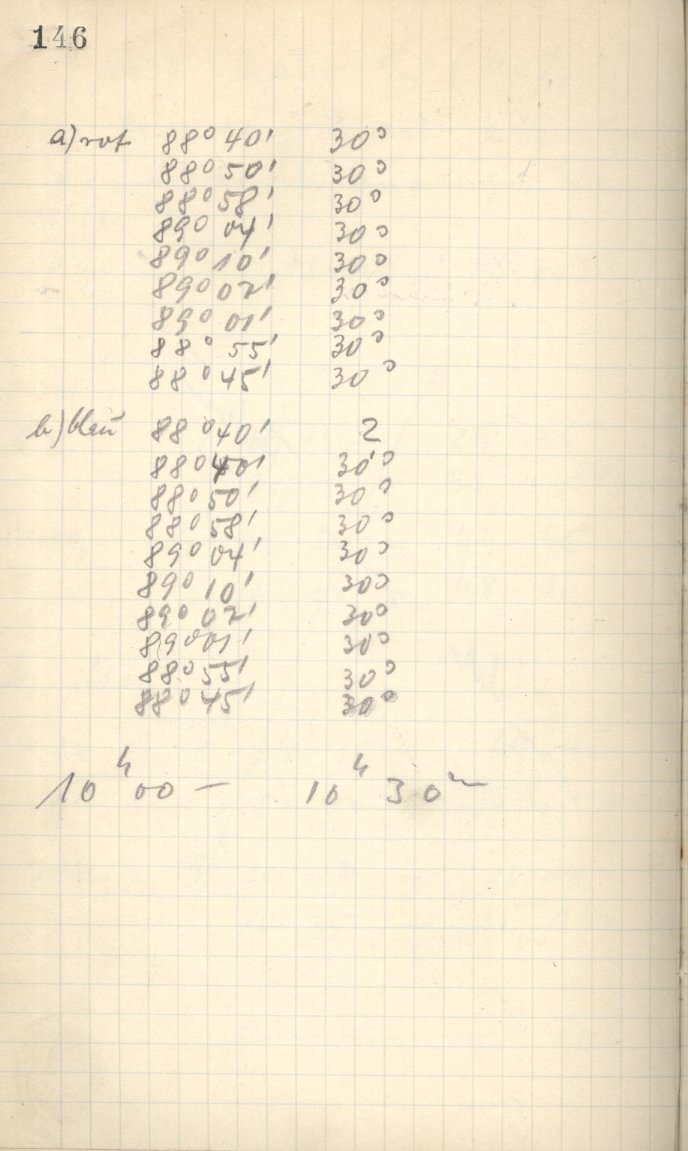 146
a) rot 88° 40' 30°
88° 50' 30°
88° 58' 30°
89° 04' 30°
89° 10' 30°
89° 02' 30°
89° 01' 30°
88° 55' 30°
88° 45' 30°
b) blau 88° 40' 2
88° 40' 30°
88° 50' 30°
88° 58' 30°
89° 04' 30°
89° 10' 30°
89° 02' 30°
89° 01' 30°
88° 55' 30°
88° 45' 30°
10ʰ 00 — 10ʰ 30ᵐ